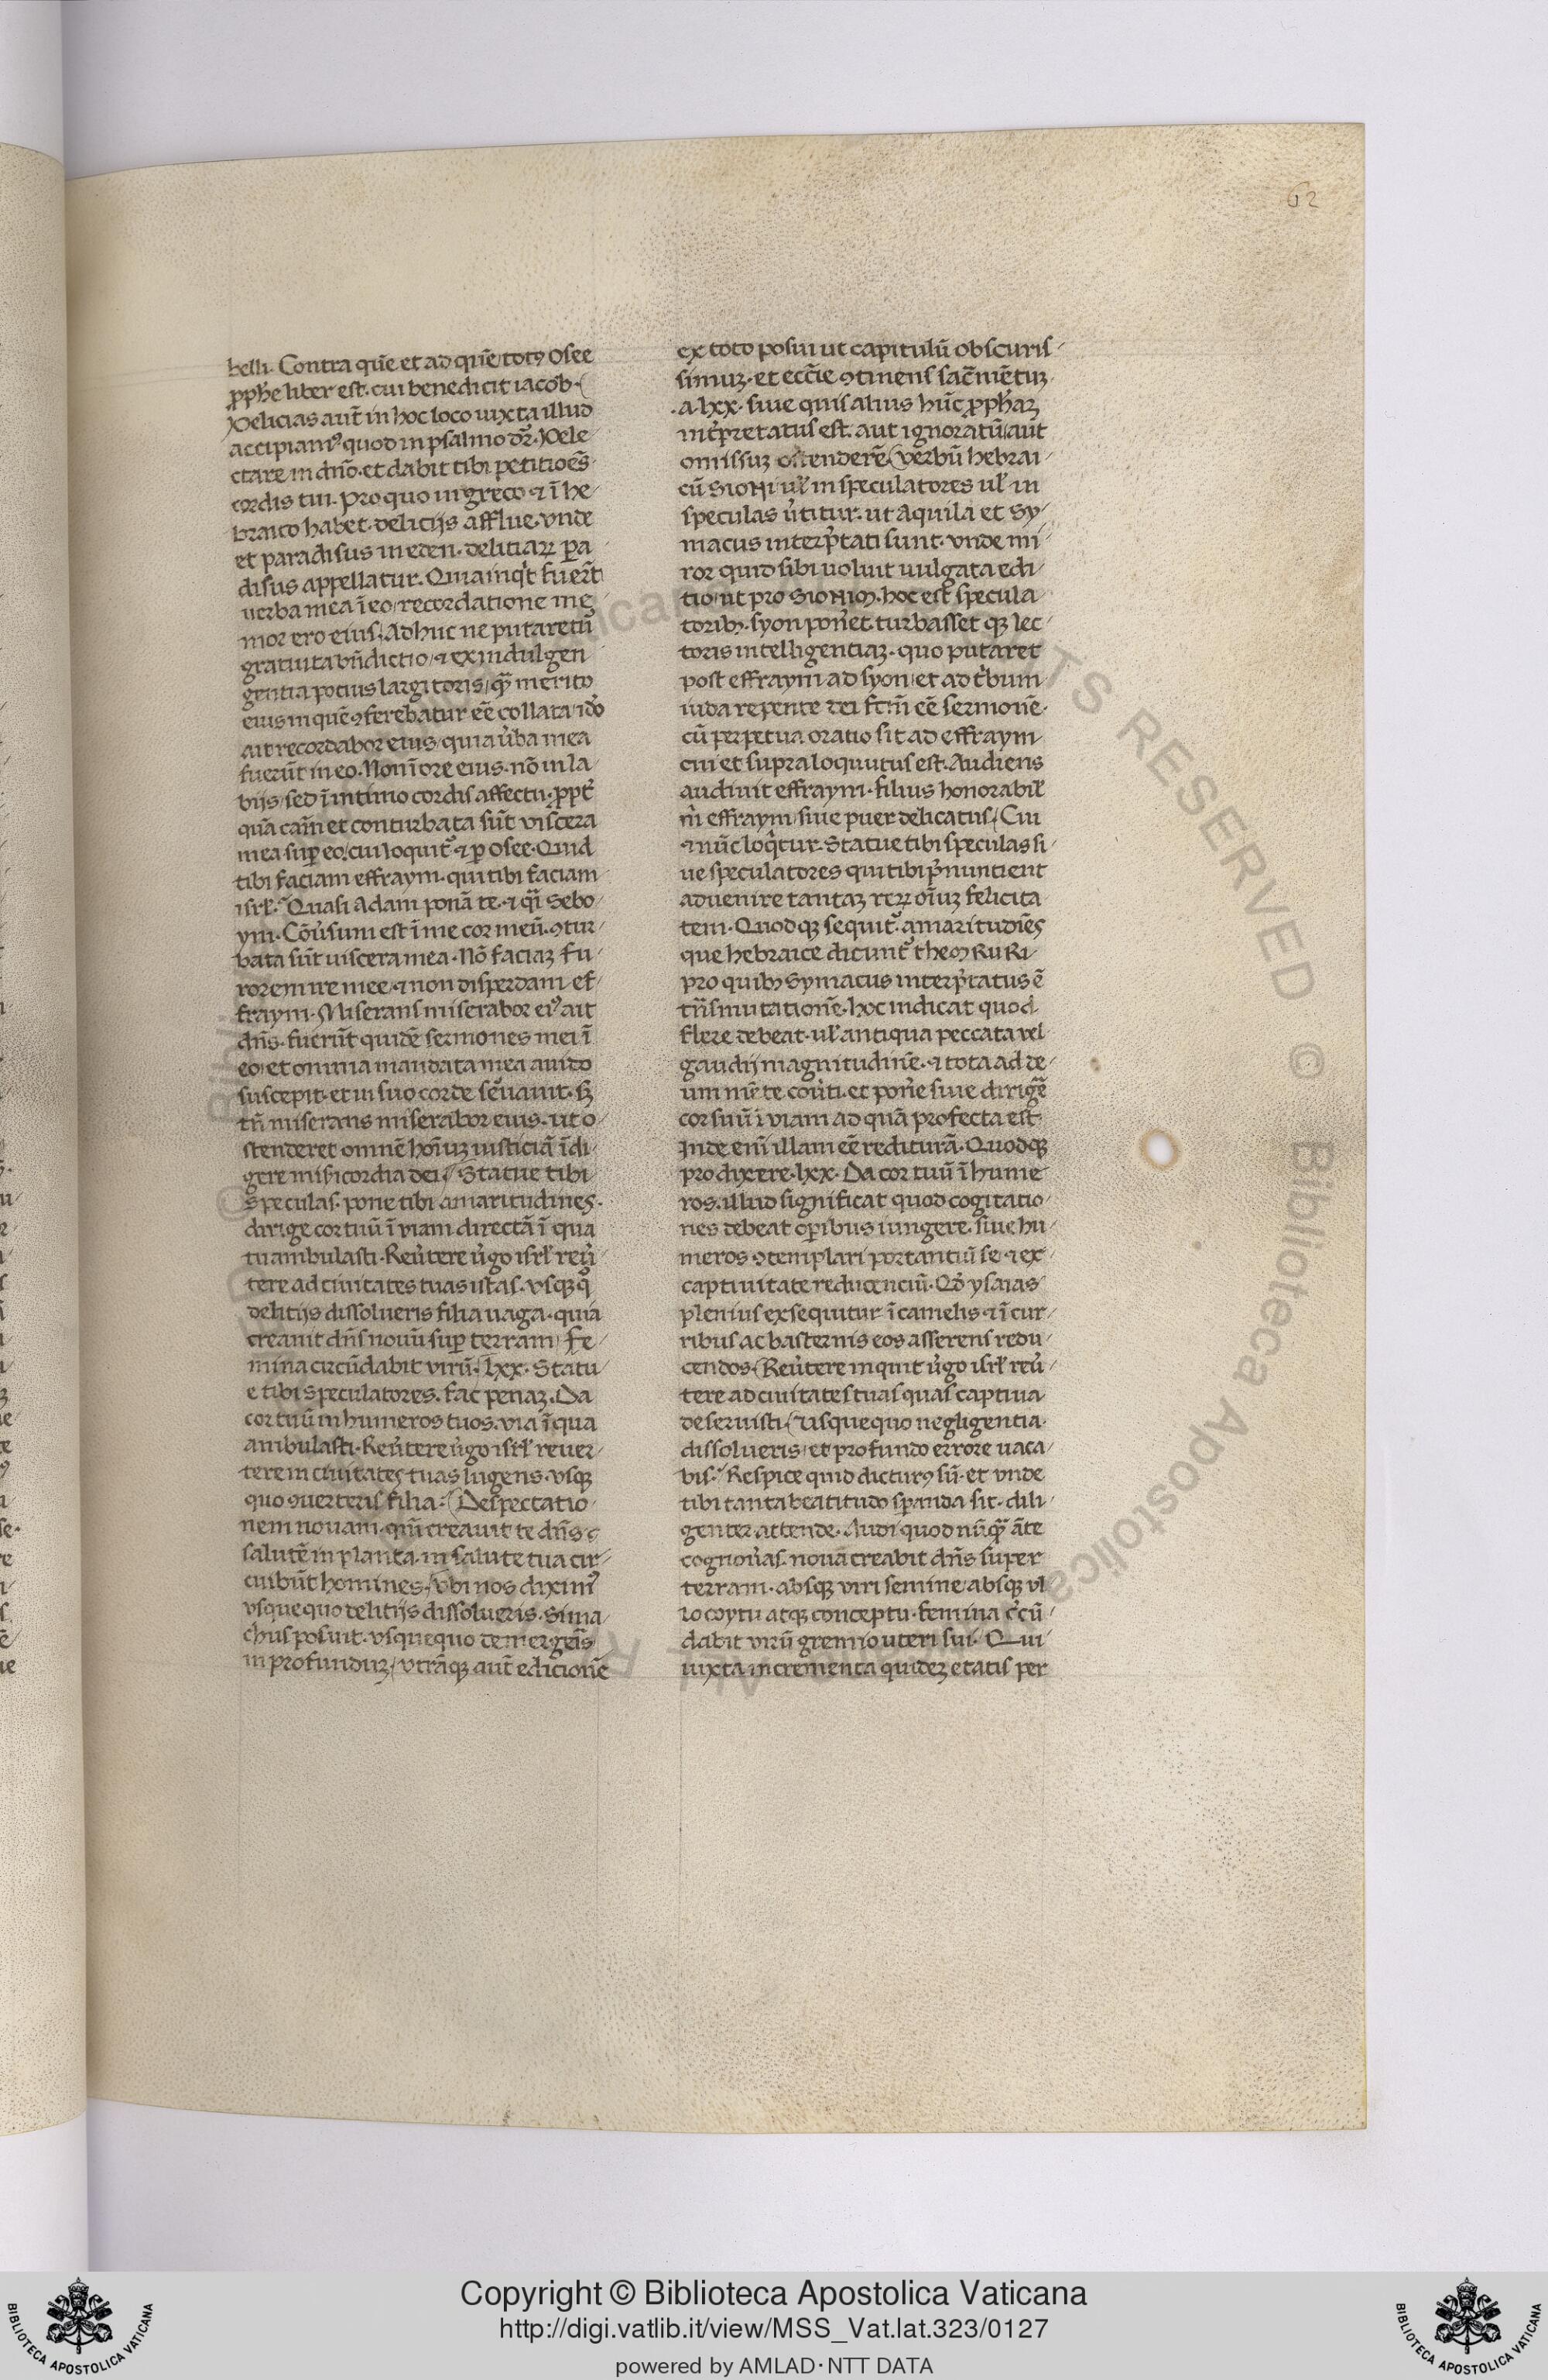 62
belli. Contra quē et ad quē totꝯ Osee
ꝓphe liber est. cui benedicit iacob.
Delicias aut̄ in hoc loco iuxta illud
accipiamꝰ quod in psalmo dr̄. Dele
ctare in dn̄o. et dabit tibi petitiōes
cordis tui. pro quo in greco ⁊ ī he
braico habet. delicijs afflue. vnde
et paradisus in eden. delitiaꝝ ꝑa
disus appellatur. Quia inqͥt fuer̄t
uerba mea ī eo recordatione me
mor ero eius. Adhuc ne putaretū
gratuita bn̄dictio ⁊ ex indulgen
gentia potius largitoris qꝫ̄ merito
eius in quē ꝯferebatur eē collata ido
ait recordabor eius quia ūba mea
fuerūt in eo. Non ī ore eius. nō in la
bijs sed ī intimo cordis affectu. ꝓpt̄
quā cām et conturbata sūt viscera
mea suꝑ eo. cui loquitͣ ⁊ ꝑ Osee. Quid
tibi faciam effraym. qui tibi faciam
isrl̄. Quasi Adam ponā te. ⁊ qͣi Sebo
ym. Cōūsum est ī me cor meū. ꝯtur
bata sūt uiscera mea. Nō faciaꝫ fu
rorem ire mee. ⁊ non disperdam ef
fraym. Miserans miserabor eiꝰ ait
dn̄s. fuerūt quidē sermones mei ī
eo et omnia mandata mea auido
suscepit. et in suo corde seruauit. sꝫ
tn̄ miserans miserabor eius. ut o
stenderet omnē hoīuꝫ iusticiā īdi
gere mis̄icordia dei. Statue tibi
speculas. pone tibi amaritudines.
dirige cor tuū ī viam directā ī qua
tu ambulasti. Reūtere ūgo isrl̄ reū
tere ad ciuitates tuas istas. vsqꝫ qͦ
delitijs dissolueris filia uaga. quia
creauit dn̄s nouū suꝑ terram fe
mina circūdabit virū. lxx. Statu
e tibi speculatores. fac penaꝫ. Da
cor tuū in humeros tuos. via ī qua
ambulasti. Reūtere ūgo isrl̄ reuer
tere in ciuitates tuas lugens. vsqꝫ
quo ꝯuerteris filia. Despectatio
nem nouam. qm̄ creauit te dn̄s
salutē in planta. in salute tua cir
cuibūt homines. Vbi nos diximꝰ
vsquequo delitijs dissolueris. Sima
chus posuit. vsquequo demergeris
in profunduꝫ. vtrāqꝫ aut̄ edicionē
ex toto posui ut capitulū obscuris
simuꝫ. et eccīe ꝯtinens sac̄mētuꝫ
.a. lxx. siue quis alius hūc ꝓphaꝫ
int̄pretatus est. aut ignoratū aut
omissuꝫ ostenderē verbū hebrai
cū SIONI ul̄ in speculatores ul̄ in
speculas ūtitur. ut Aquila et Sy
macus interp̄tati sunt. vnde mi
ror quid sibi uoluit uulgata edi
tio ut pro SIONIM. hoc est specula
toribꝫ. syon pon̄et. turbasset qꝫ lec
toris intelligentiaꝫ. quo putaret
post effraym ad syon et ad t̄bum
iuda repente dei fc̄m eē sermonē.
cū perpetua oratio sit ad effraym
cui et supra loquutus est. Audiens
audiuit effraym. filius honorabil̄
m̄ effraym siue puer delicatus. Cui
⁊ nūc loqͥtur. Statue tibi speculas si
ue speculatores qui tibi p̄nuntient
aduenire tantaꝫ reꝝ oīuꝫ felicita
tem. Quodqꝫ sequitͣ. amaritudīes
que hebraice dicuntͣ themRuRi
pro quibꝫ Symacus interp̄tatus ē
trn̄smutationē. hoc indicat quod
flere debeat. ul̄ antiqua peccata vel
gaudij magnitudinē. ⁊ tota ad de
um mēte coūti. et pon̄e siue dirigē
cor suū ī viam ad quā profecta est.
Inde enī illam eē rediturā. Quodqꝫ
pro dixere. lxx. Da cor tuū ī hume
ros. illud significat quod cogitatio
nes debeat oꝑibus iungere. siue hu
meros ꝯtemplari portantiū se. ⁊ ex
captiuitate reducenciū. Qd̄ ysaias
plenius exsequitur ī camelis. ⁊ ī cur
ribus ac basternis eos asserens redu
cendos. Reūtere inquit ūgo isrl̄ reū
tere ad ciuitates tuas quas captiua
deseruisti. Usquequo negligentia
dissolueris et profundo errore uaca
bis. Respice quid dicturꝯ sū. et vnde
tibi tanta beatitudo speranda sit. dili
genter attende. Audi quod nūqꝫ̄ āte
cognoūas. noua creabit dn̄s super
terram. absqꝫ viri semine absqꝫ vl
lo coytu atqꝫ conceptu. femina c̄cū
dabit virū gremio uteri sui. Qui
iuxta incrementa quideꝫ etatis per
Copyright © Biblioteca Apostolica Vaticana
http://digi.vatlib.it/view/MSS_Vat.lat.323/0127
powered by AMLAD·NTT DATA
BIBLIOTECA APOSTOLICA VATICANA
BIBLIOTECA APOSTOLICA VATICANA